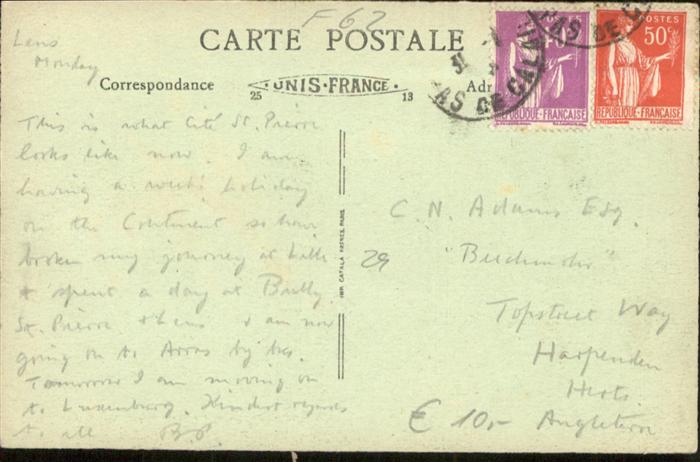 F 62
Lens
Monday
CARTE POSTALE
Correspondance
UNIS-FRANCE
25 13
Adr
PAS DE CALAIS
POSTES
RÉPUBLIQUE-FRANÇAISE
POSTES
50c
RÉPUBLIQUE-FRANÇAISE
PAS DE CA
This is what Cité St. Pierre
looks like now. I am
having a week's holiday
on the Continent so have
broken my journey at Lille
& spent a day at Bully,
St. Pierre & Lens I am now
going on to Arras by bus.
Tomorrow I am moving on
to Luxemburg. Kindest regards
to all B.P.
IMP. CATALA FRERES, PARIS
29
C. N. Adams Esq.
Topstreet Way
Harpenden
Herts.
Angleterre
€ 10,-